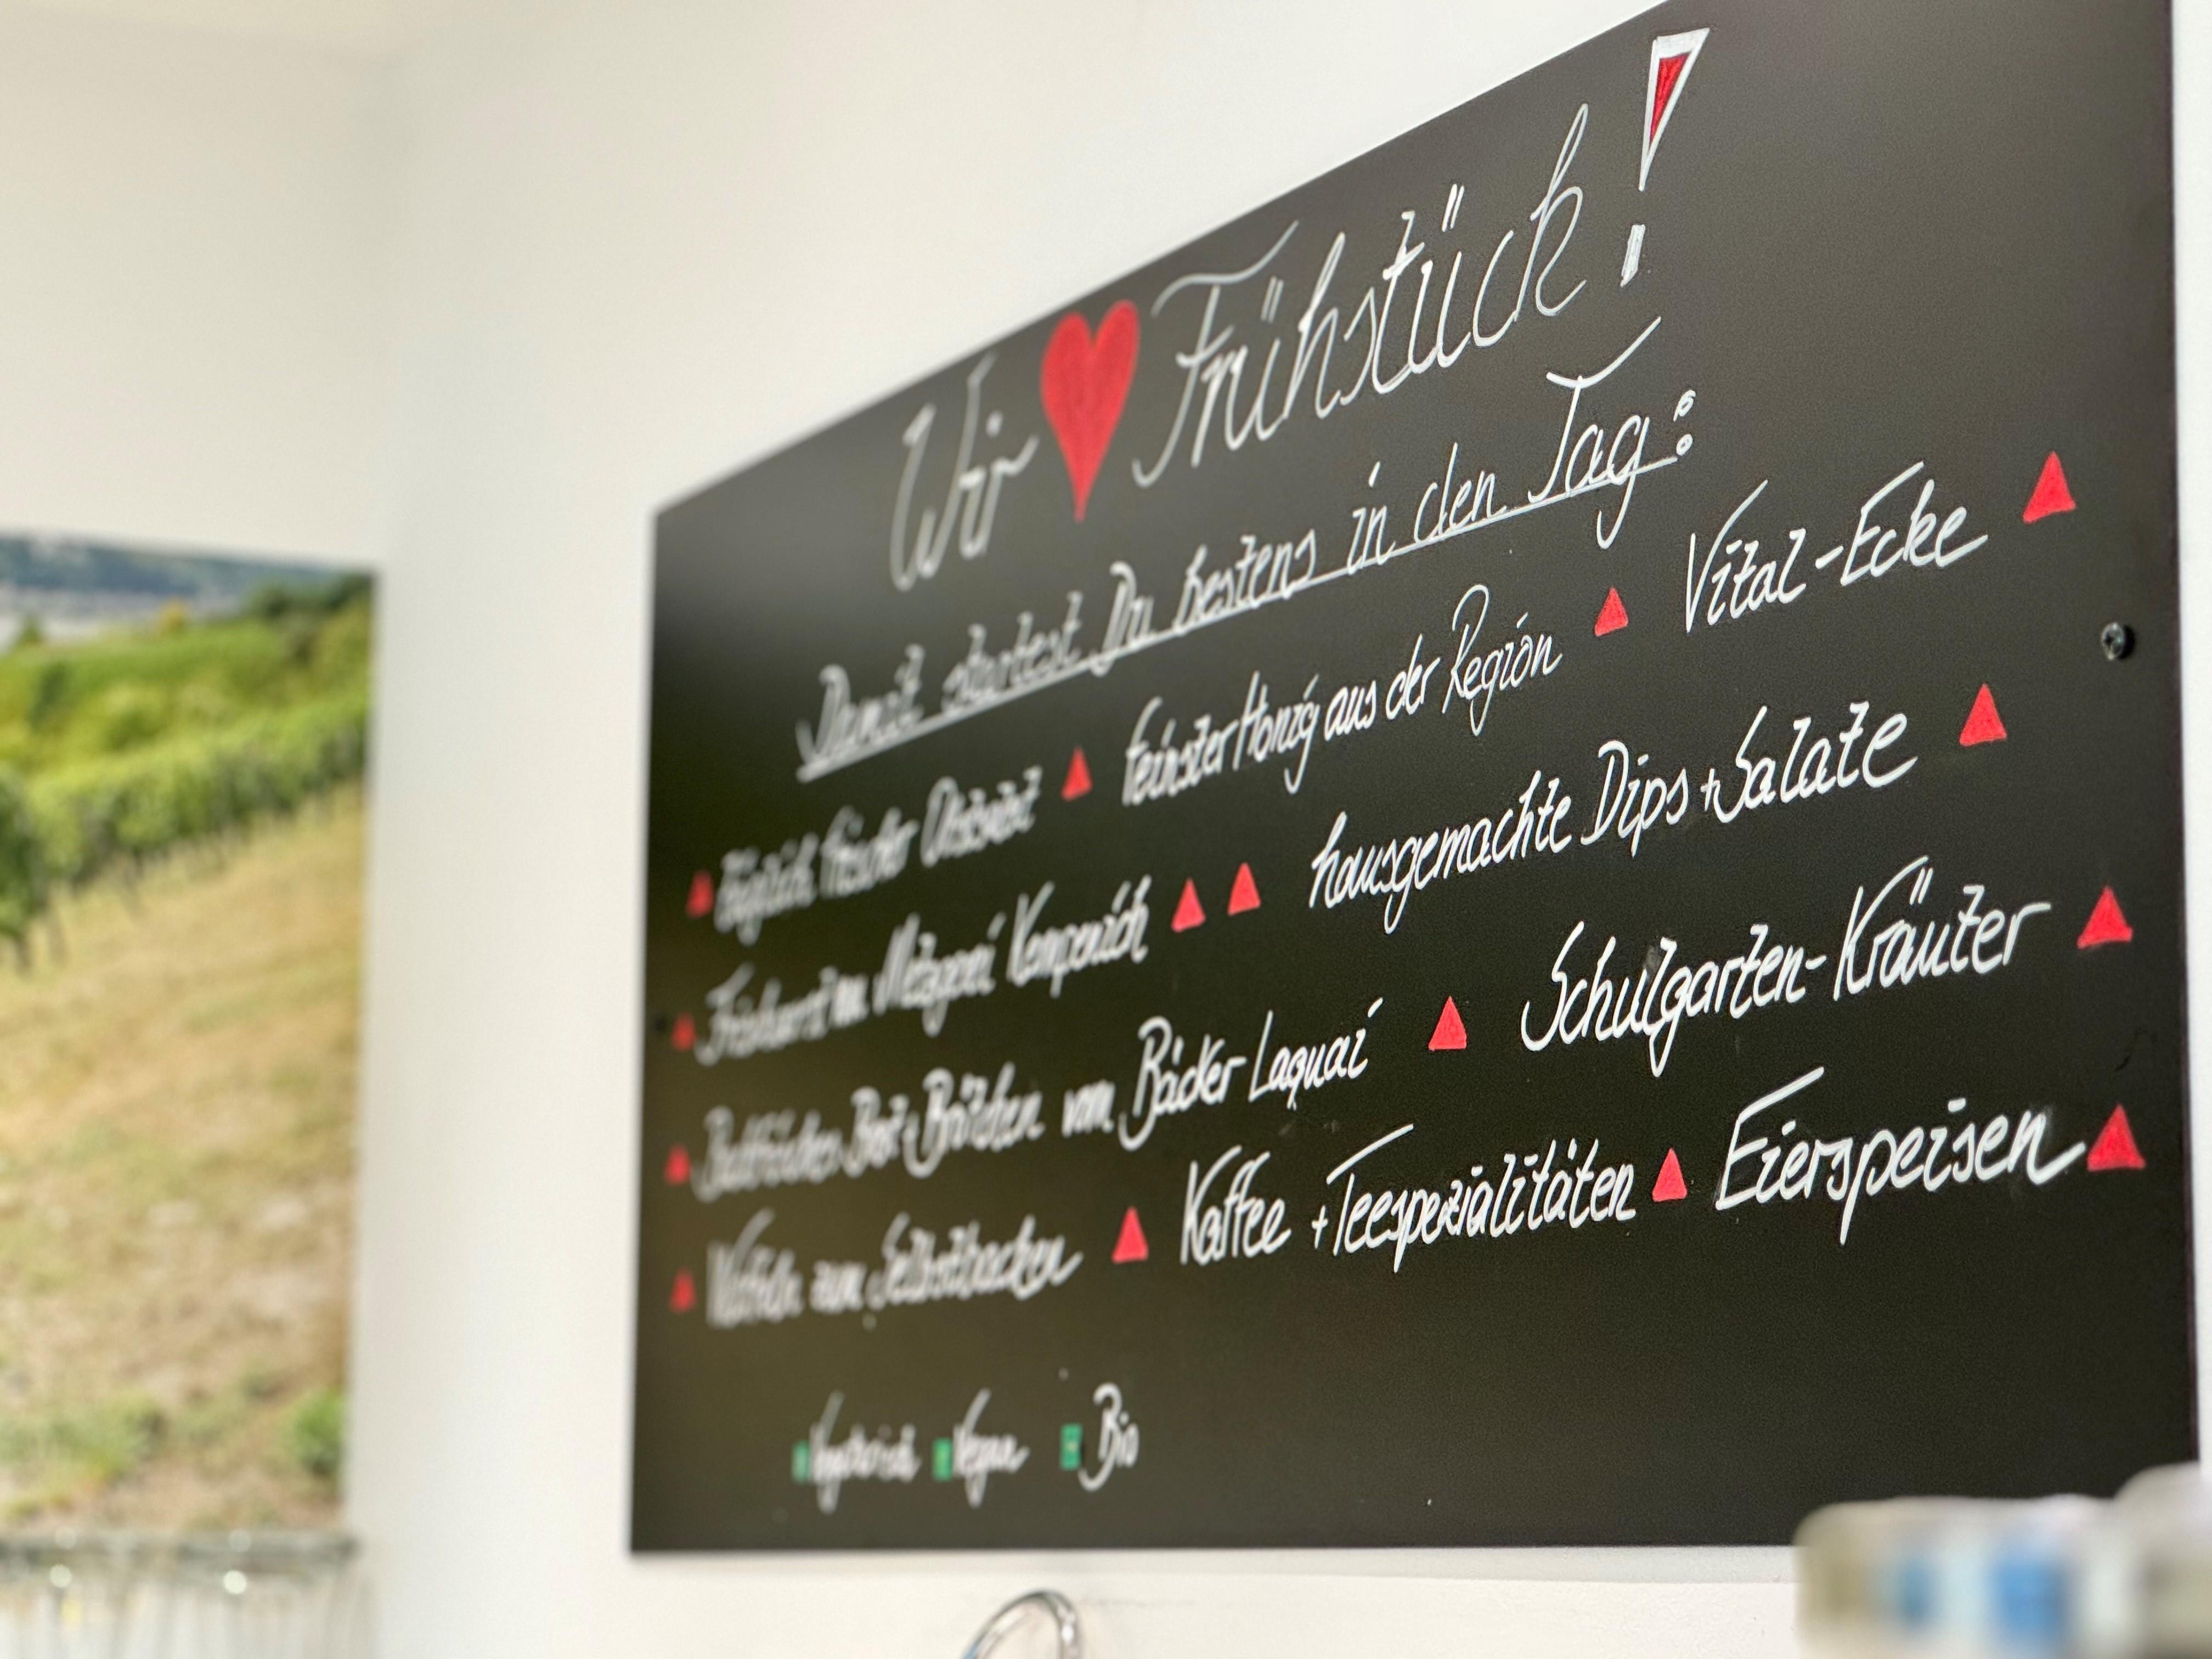 Wir ♥ Frühstück!
Damit startest Du bestens in den Tag:
▲ täglich frischer Obstsalat ▲ feinster Honig aus der Region ▲ Vital-Ecke ▲
▲ Metzgerei ▲ ▲ hausgemachte Dips + Salate ▲
▲ Brot + Brötchen vom Bäcker Laquai ▲ Schulgarten-Kräuter ▲
▲ Waffeln zum Selbstbacken ▲ Kaffee + Teespezialitäten ▲ Eierspeisen ▲
Vegetarisch Vegan Bio